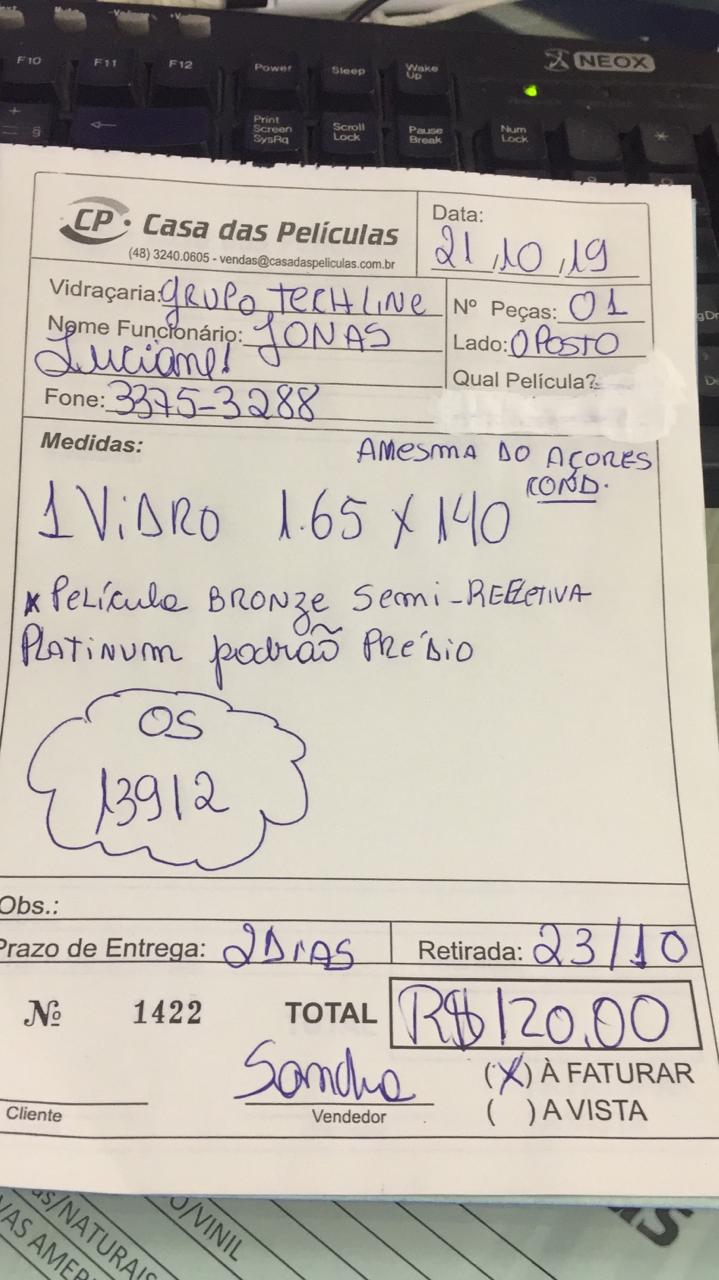 F10 F11 F12 Power Sleep Wake Up NEOX
Print Screen SysRq Scroll Lock Pause Break Num Lock *
CP Casa das Películas
(48) 3240.0605 - vendas@casadaspeliculas.com.br
Data:
21,10,19
Vidraçaria: GRUPO TECHLINE
Nº Peças: 01
Nome Funcionário: JONAS
Luciane!
Lado: OPOSTO
Qual Película?
Fone: 3375-3288
Medidas:
AMESMA DO AÇORES
COND.
1 ViDRO 1.65 X 140
* Película BRONZe Semi-REFLETIVA
PLATINUM padrão PRéDIO
OS
13912
Obs.:
Prazo de Entrega: 2 DIAS
Retirada: 23/10
Nº 1422 TOTAL R$ 120,00
Sandra
(X) À FATURAR
Cliente
Vendedor
( ) A VISTA
O/VINIL
us/NATURAIS
VAS AMERI